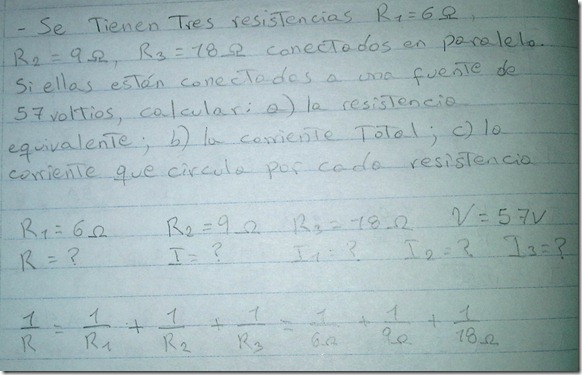 - Se Tienen Tres resistencias R1 = 6 Ω,
R2 = 9 Ω, R3 = 18 Ω conectados en paralelo.
Si ellas están conectados a una fuente de
57 voltios, calcular: a) la resistencia
equivalente; b) la corriente Total; c) la
corriente que circula por cada resistencia
R1 = 6 Ω R2 = 9 Ω R3 = 18 Ω V = 57V
R = ? I = ? I1 = ? I2 = ? I3 = ?
1/R = 1/R1 + 1/R2 + 1/R3 = 1/6Ω + 1/9Ω + 1/18Ω